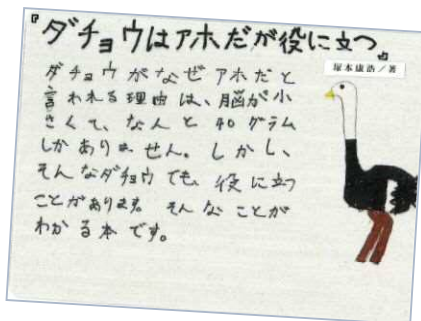 『ダチョウはアホだが役に立つ』
塚本康浩/著
ダチョウがなぜアホだと
言われる理由は、脳が小
さくて、なんと40グラム
しかありません。しかし、
そんなダチョウでも、役に立つ
ことがあります。そんなことが
わかる本です。